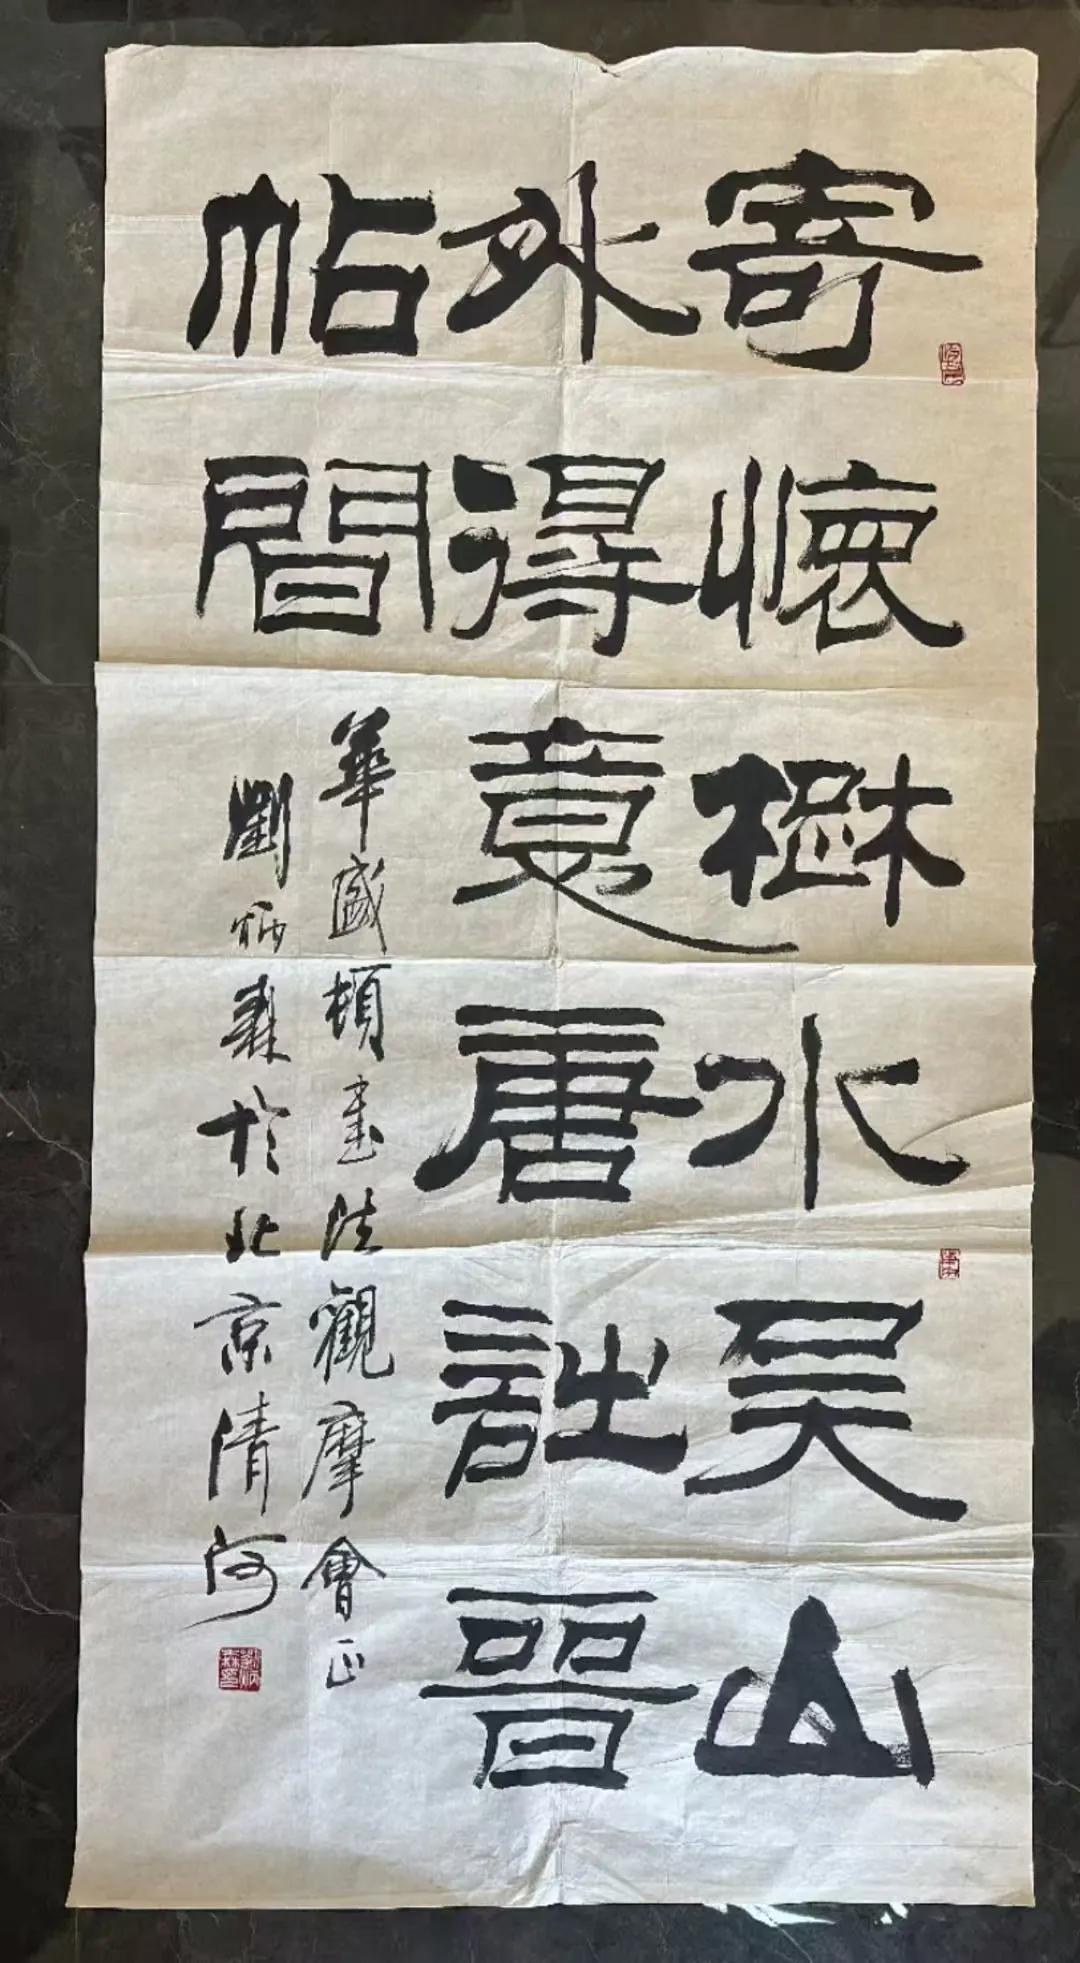 寄懷楚水吴山
外得意唐詩晉
帖間
華盛頓書法觀摩會正
劉炳森於北京清河